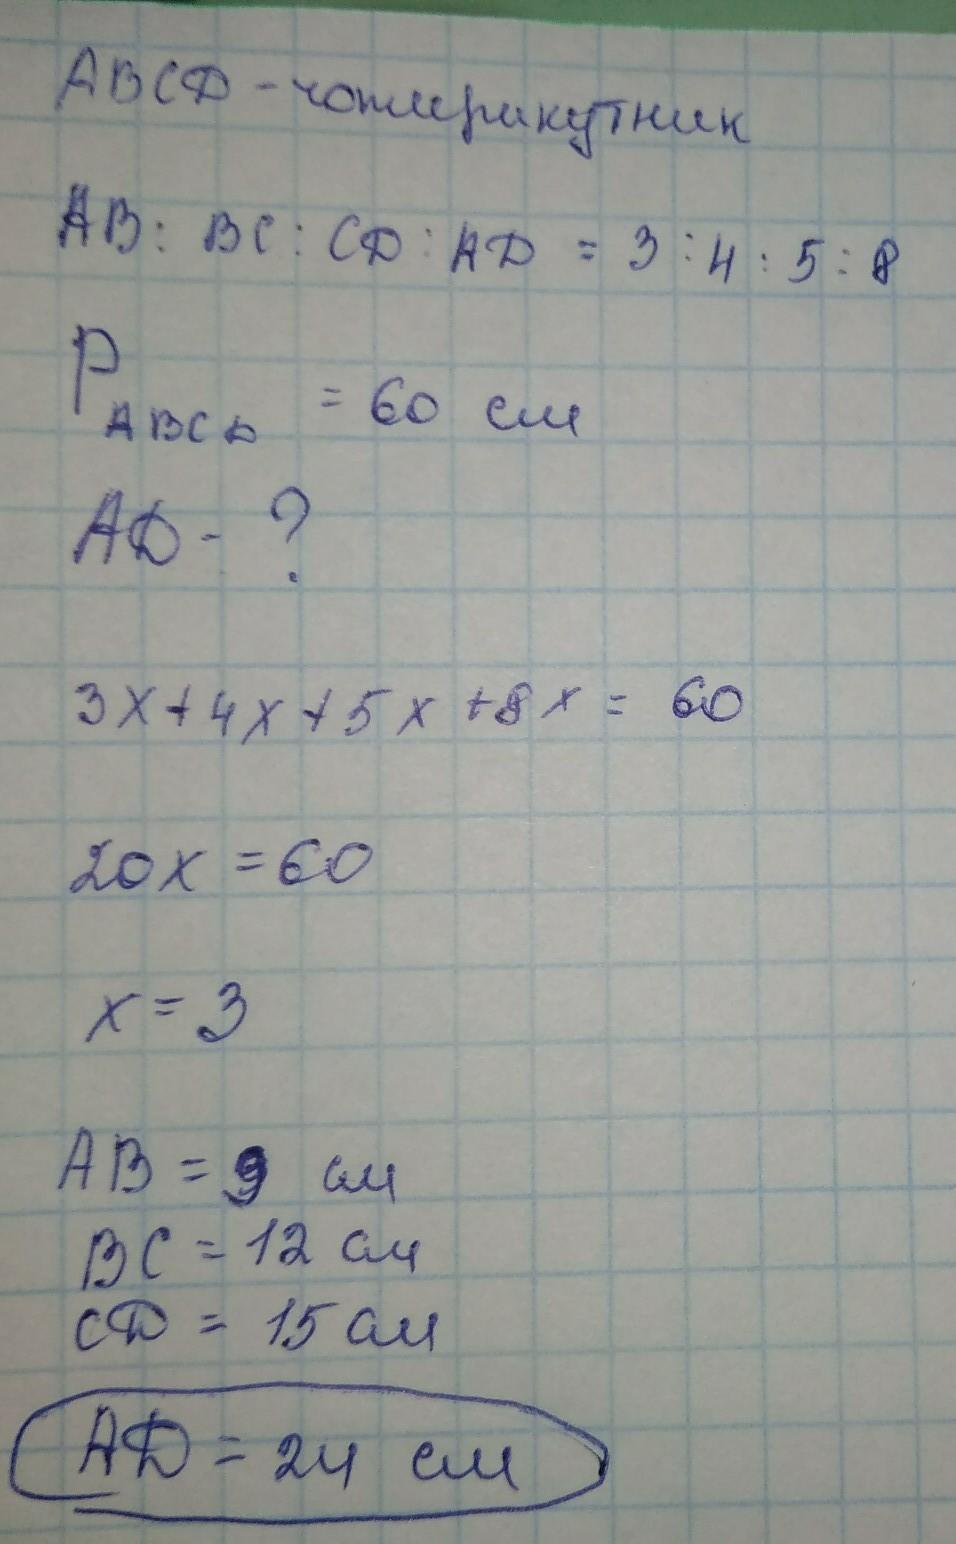 ABCD - чотирикутник
AB : BC : CD : AD = 3 : 4 : 5 : 8
P ABCD = 60 см
AD - ?
3x + 4x + 5x + 8x = 60
20x = 60
x = 3
AB = 9 см
BC = 12 см
CD = 15 см
AD = 24 см